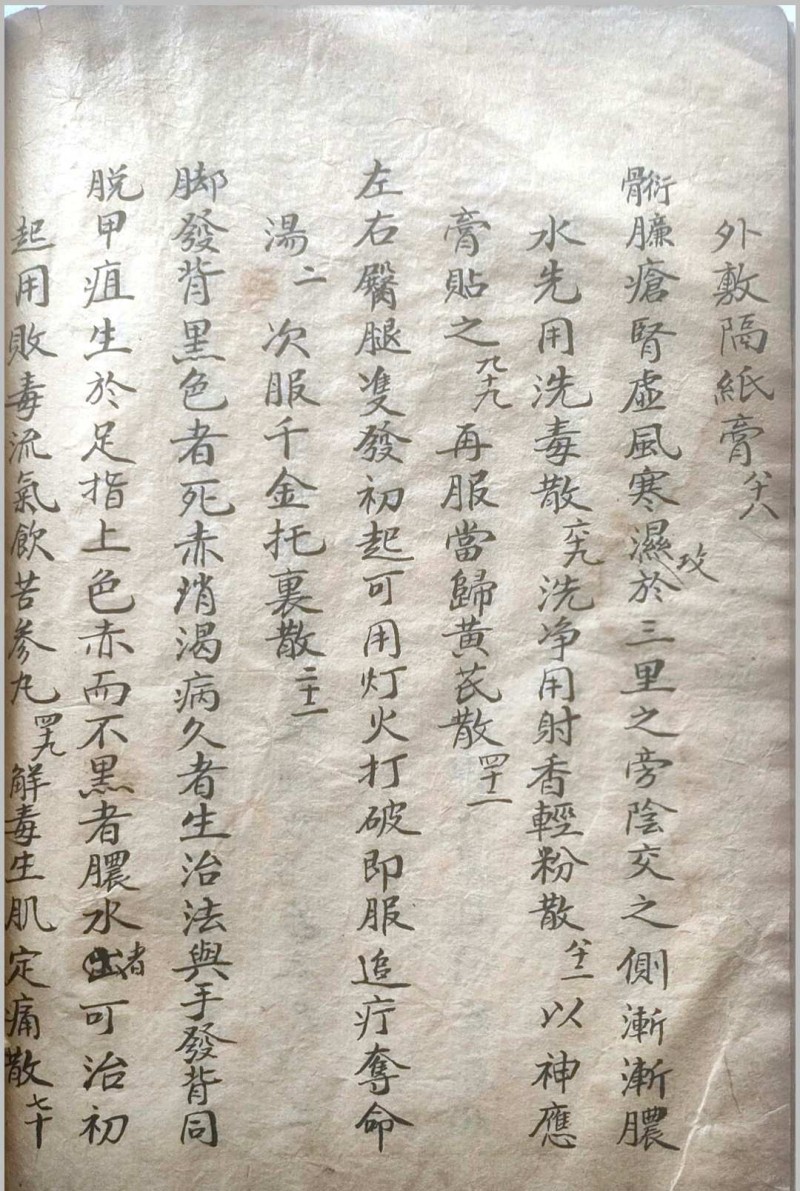 外敷隔紙膏八十八
骨衍臁瘡腎虛風寒濕攻於三里之旁陰交之側漸漸膿
水先用洗毒散六十九洗净用射香輕粉散八十二以神應
膏貼之九十九再服當歸黃芪散四十二
左右臀腿雙發初起可用灯火打破即服追疔奪命
湯二次服千金托裏散二十二
脚發背黑色者死赤瘠渴病久者生治法與手發背同
脱甲疽生於足指上色赤而不黑者膿水出者可治初
起用敗毒流氣飲苦参丸四十九解毒生肌定痛散七十